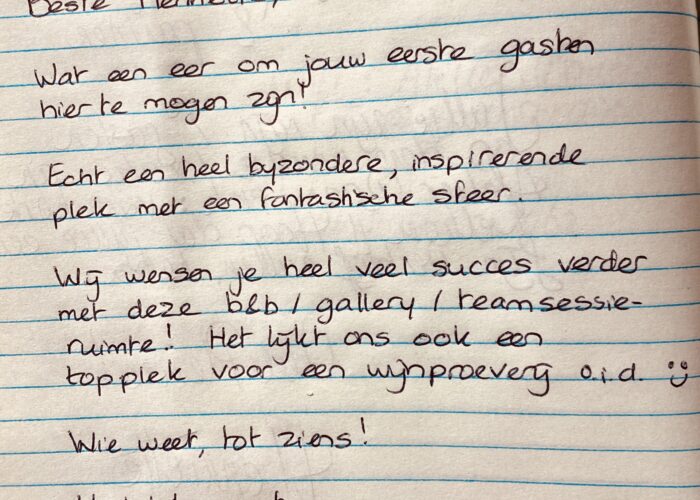 Beste
Wat een eer om jouw eerste gasten
hier te mogen zijn!
Echt een heel byzondere, inspirerende
plek met een fantastische sfeer.
Wij wensen je heel veel succes verder
met deze b&b / gallery / teamsessie-
ruimte! Het lijkt ons ook een
topplek voor een wijnproeverij o.i.d. :)
Wie weet, tot ziens!